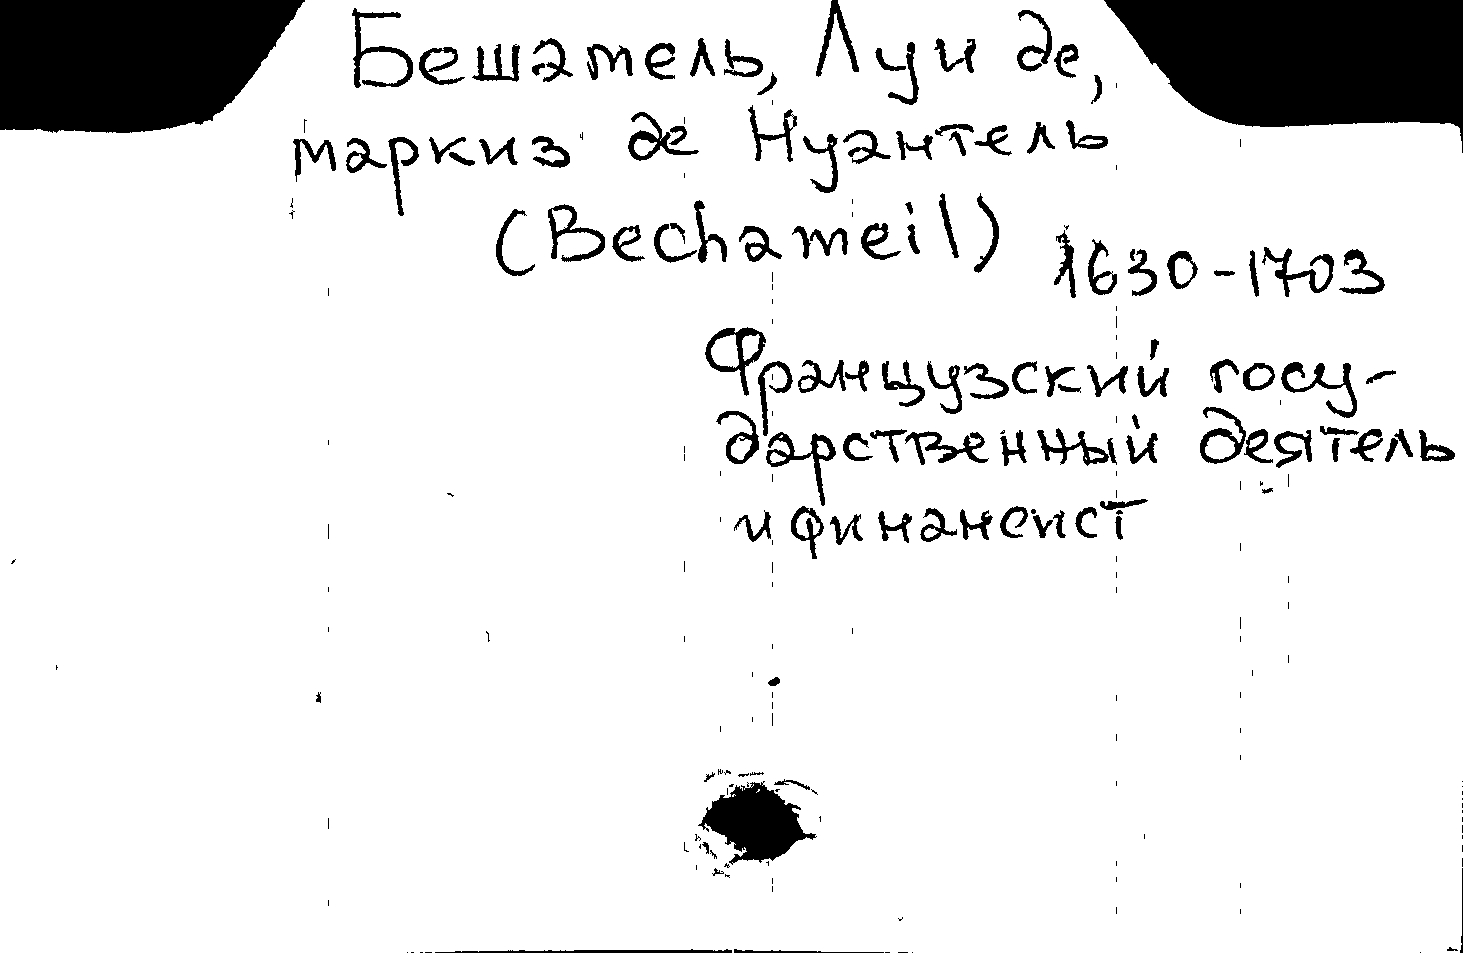 Бешатель, Луи де,
маркиз де Нуантель
(Bechameil)
1630-1703
Французский госу-
дарственный деятель
и финансист